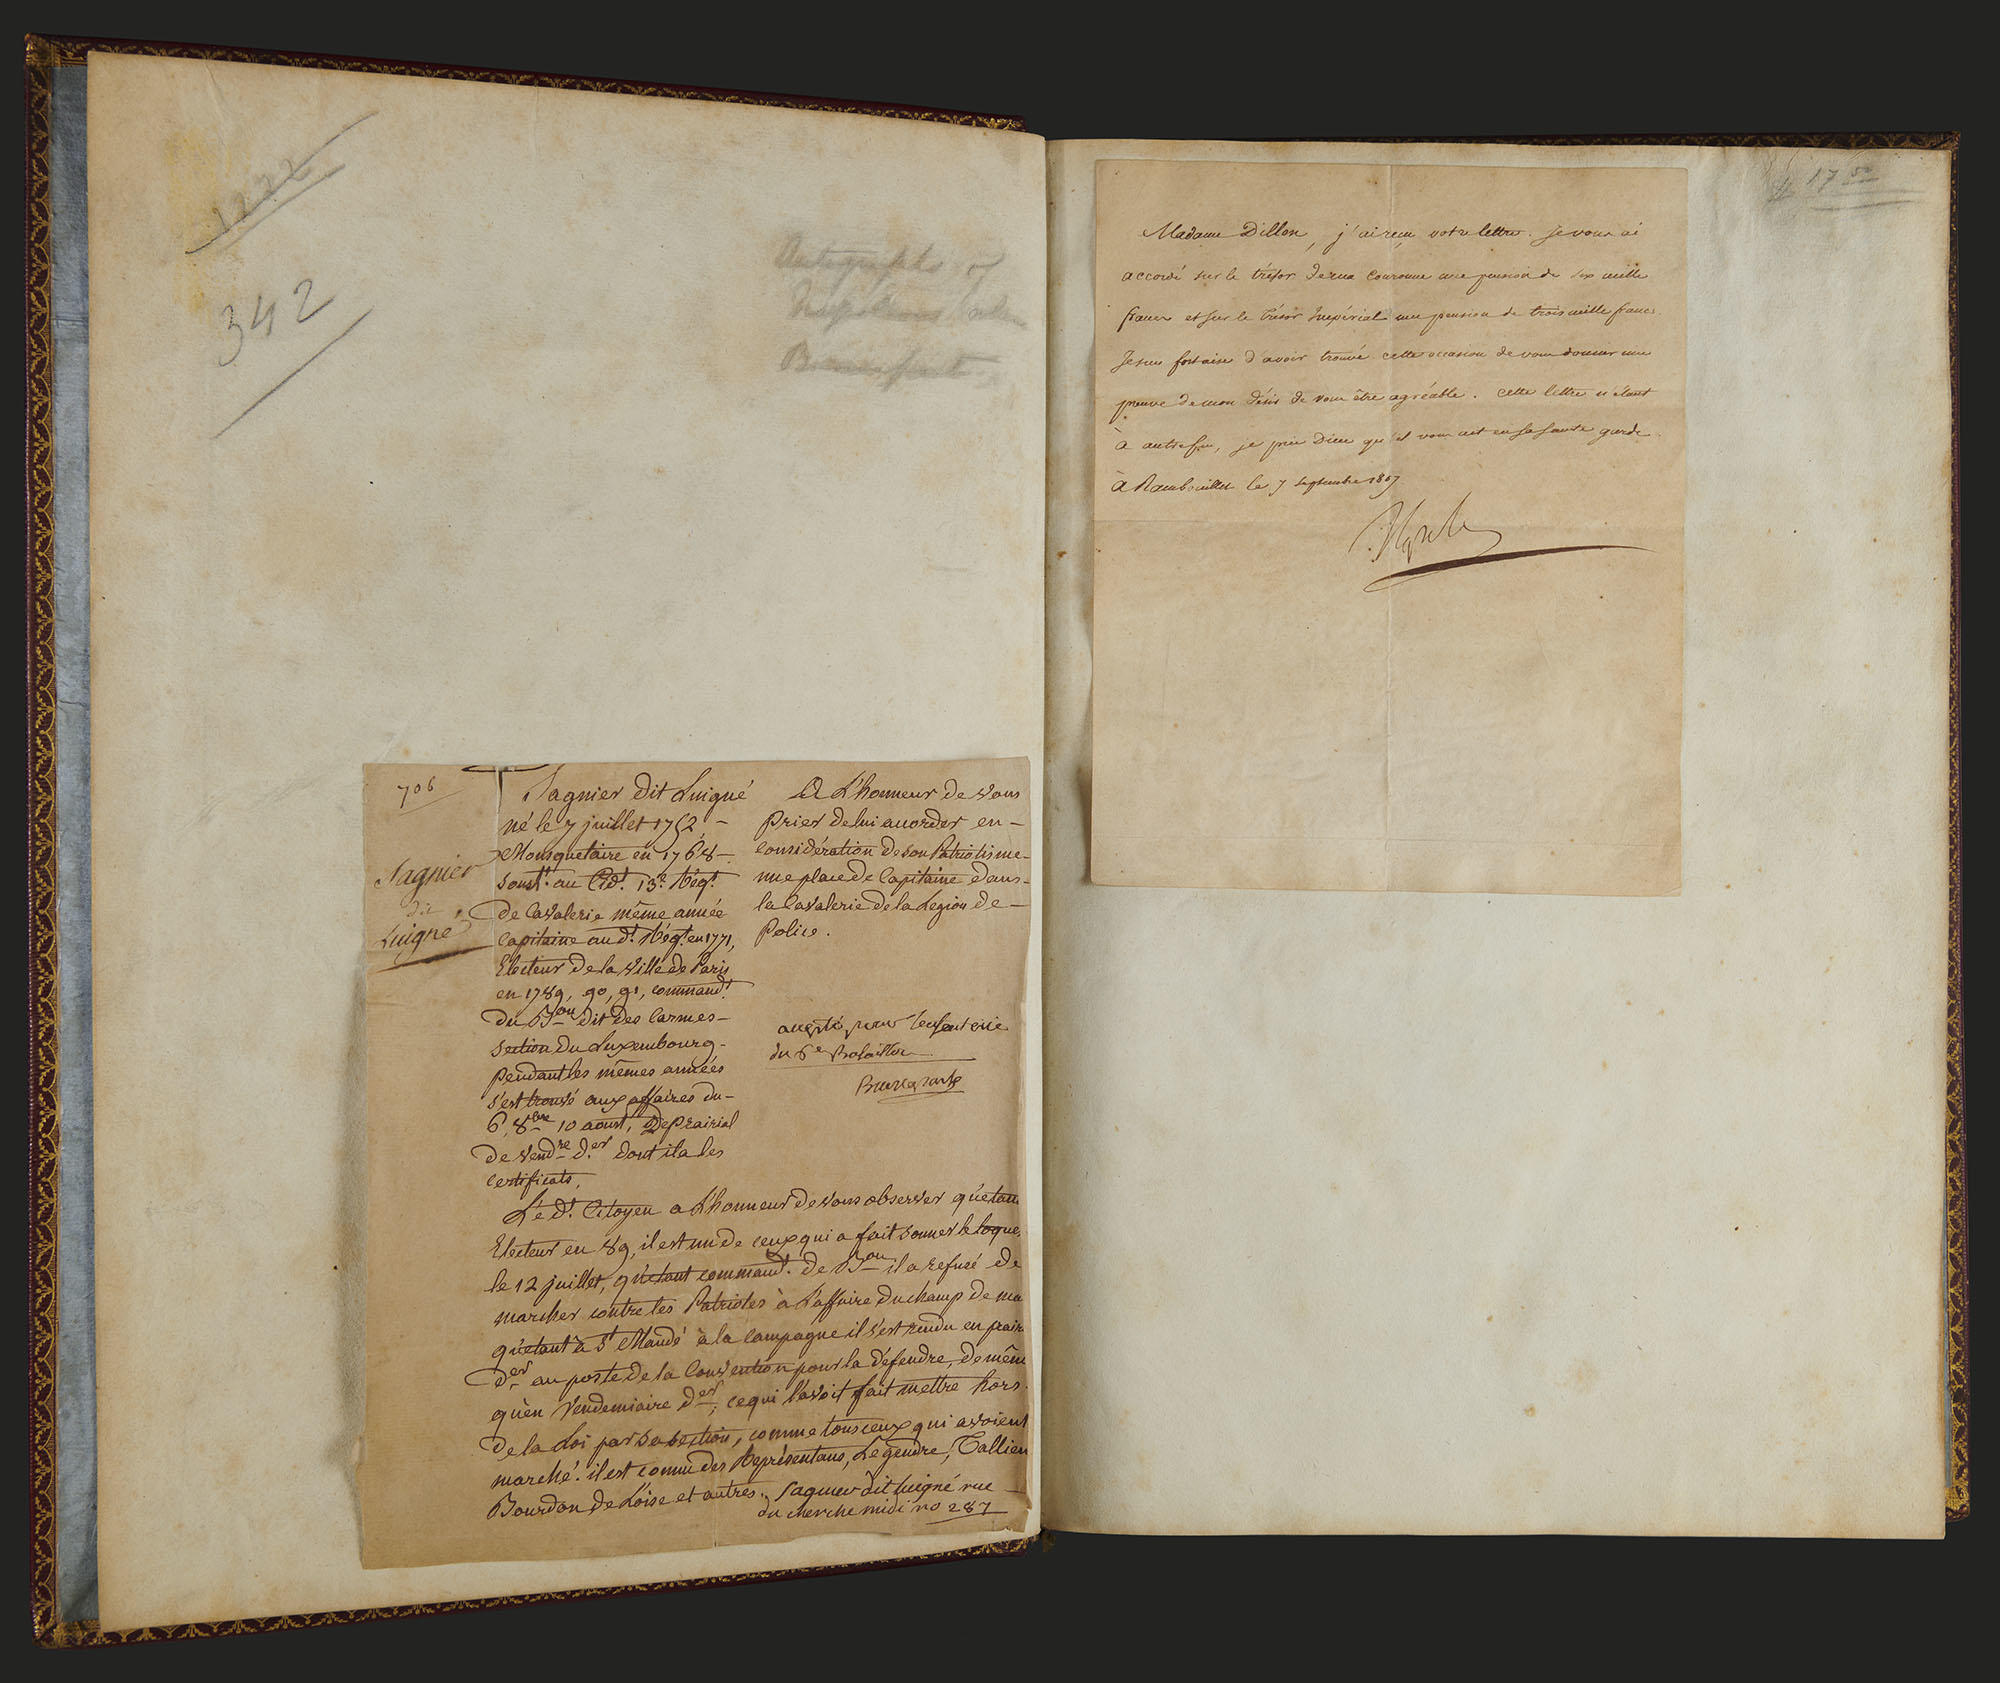 1222
342
Autographs of
Napoleon
Bonaparte
706
Sagnier
dit
Luigné
Sagnier dit Luigné
né le 7 juillet 1752 –
Mousquetaire en 1768 –
sousLt. au Cidt. 13e. Régt.
de Cavalerie même année
Capitaine au dt. Régt. en 1771,
Electeur de la Ville de Paris
en 1789, 90, 91, commandt.
du Bon dit des Carmes –
section du Luxembourg –
pendant les mêmes années
s'est trouvé aux affaires du –
6, 8bre 10 aoust, De prairial
de vendre. der dont il a les
certificats,
A L'honneur de vous
prier de lui accorder en –
considération de son Patriotisme –
une place de Capitaine dans –
la Cavalerie de la Legion de –
Police.
accepté pour l'enfanterie
du 6e Bataillon
Buonaparte
Le dt. Citoyen a L'honneur de vous observer qu'etan
Electeur en 89, il est un de ceux qui a fait sonner le toque
le 12 juillet, qu'etant commandt. de Bon il a refusé de
marcher contre les Patriotes à L'affaire du champ de ma
qu'etant à St Mandé à la campagne il s'est rendu en prair
der au poste de la Convention pour la défendre, de mêm
qu'en Vendemiaire der, ce qui l'avoit fait mettre hors
de la Loi par sa section, comme tous ceux qui avoient
marché. il est connu des Représentans, Legendre, Tallien
Bourdon de L'oise et autres. Sagnier dit luigné rue –
du cherche midi no 287
17 50
Madame Dillon, j'ai reçu votre lettre. Je vous ai
accordé sur le trésor de ma Couronne une pension de six mille
francs et sur le trésor Impérial une pension de trois mille francs.
Je suis fort aise d'avoir trouvé cette occasion de vous donner une
preuve de mon désir de vous être agréable. Cette lettre n'étant
à autre fin, je prie Dieu qu'il vous ait en sa sainte garde.
à Rambouillet le 7 septembre 1807
Napole